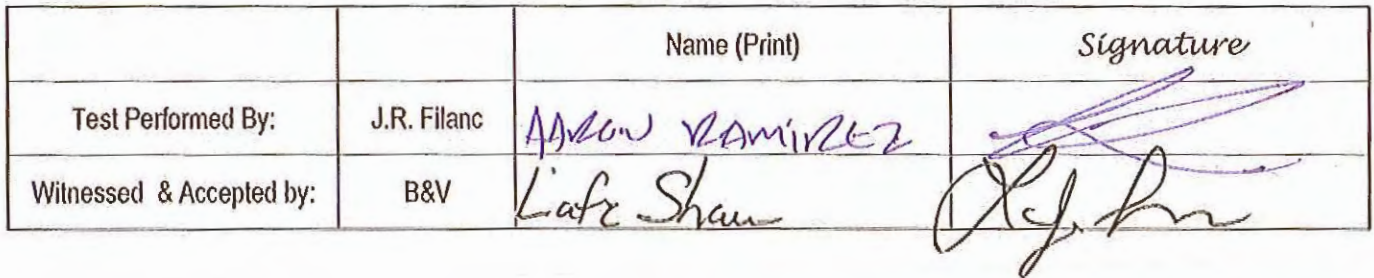 Name (Print) Signature
Test Performed By: J.R. Filanc AARON RAMIREZ
Witnessed & Accepted by: B&V Lafe Shaw